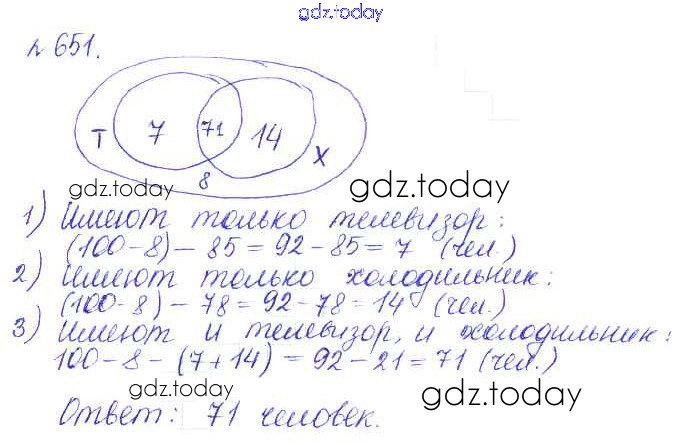 gdz.today
gdz.today
№ 651.
Т 7 71 14 Х
8
gdz.today
gdz.today
1) Имеют только телевизор:
(100-8) - 85 = 92 - 85 = 7 (чел.)
2) Имеют только холодильник:
(100-8) - 78 = 92 - 78 = 14 (чел.)
3) Имеют и телевизор, и холодильник:
100 - 8 - (7 + 14) = 92 - 21 = 71 (чел.)
gdz.today
gdz.today
Ответ: 71 человек.